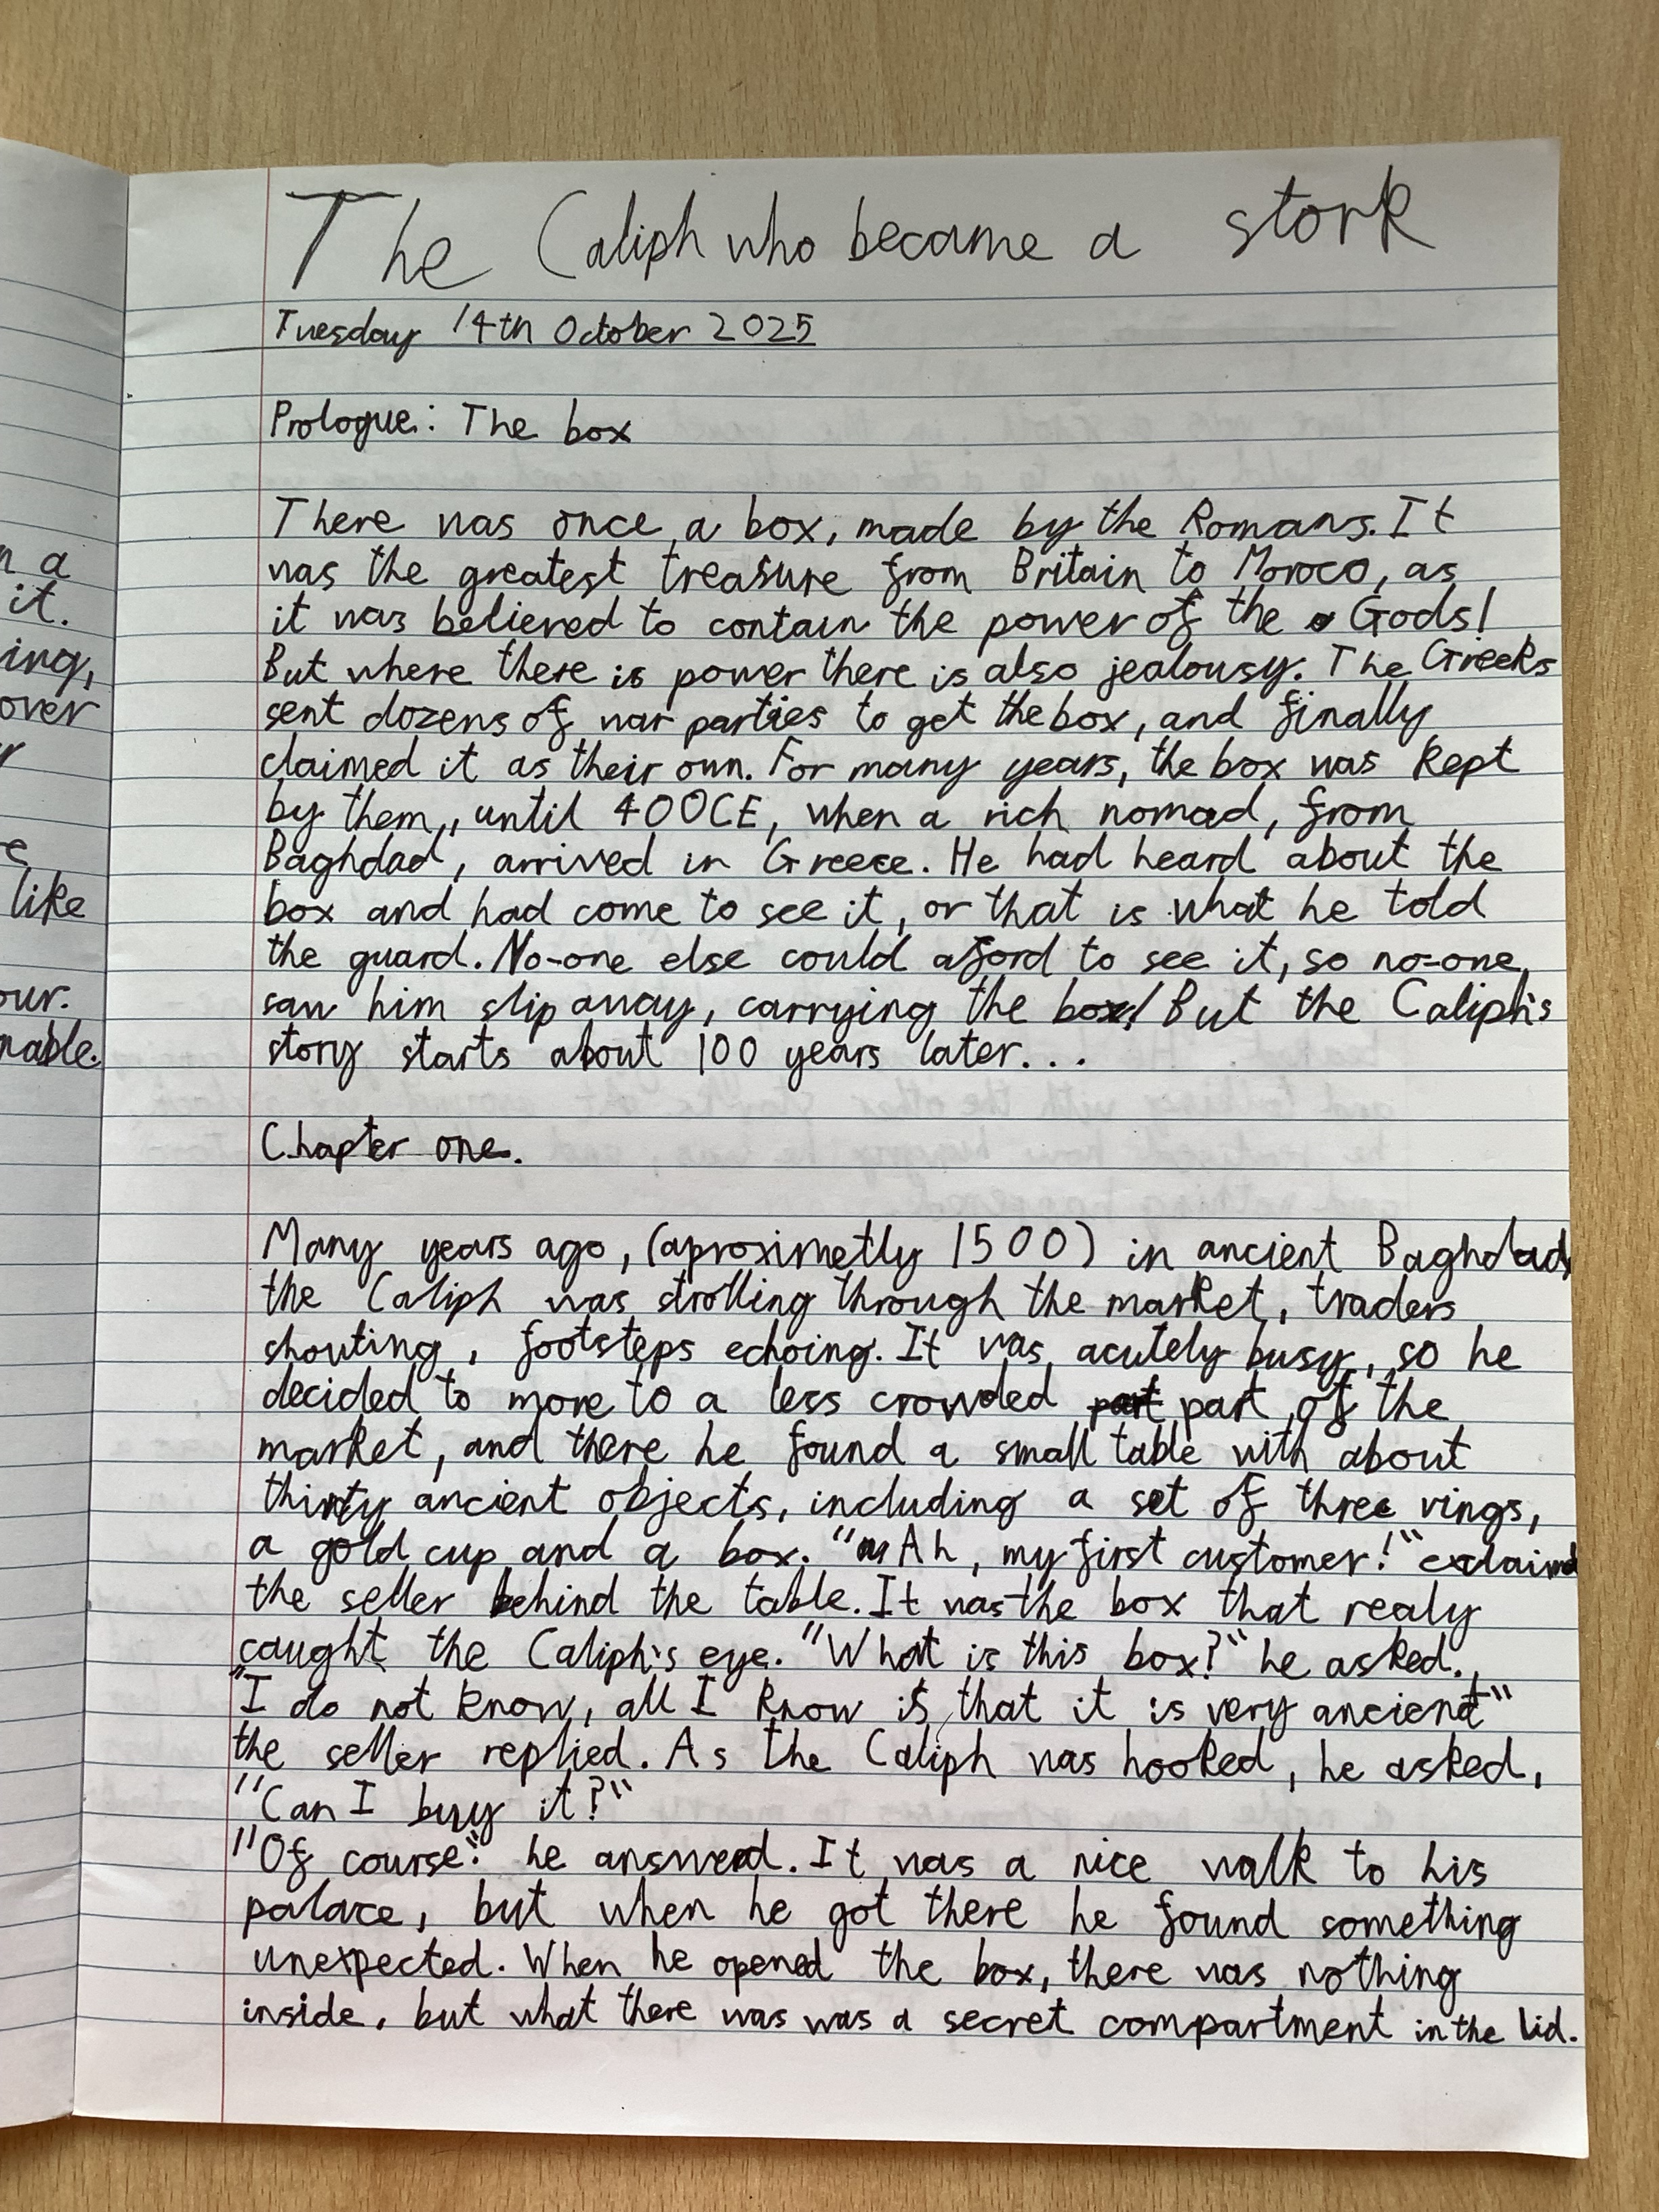 The Caliph who became a stork
Tuesday 14th October 2025
Prologue: The box
There was once a box, made by the Romans. It
was the greatest treasure from Britain to Moroco, as
it was believed to contain the power of the Gods!
But where there is power there is also jealousy. The Greeks
sent dozens of war parties to get the box, and finally
claimed it as their own. For many years, the box was kept
by them, until 400CE, when a rich nomad, from
Baghdad, arrived in Greece. He had heard about the
box and had come to see it, or that is what he told
the guard. No-one else could afford to see it, so no-one
saw him slip away, carrying the box! But the Caliph's
story starts about 100 years later...
Chapter one.
Many years ago, (aproximetly 1500) in ancient Baghdad,
the Caliph was strolling through the market, traders
shouting, footsteps echoing. It was acutely busy, so he
decided to move to a less crowded part of the
market, and there he found a small table with about
thirty ancient objects, including a set of three rings,
a gold cup and a box. "Ah, my first customer!" exclaimed
the seller behind the table. It was the box that realy
caught the Caliph's eye. "What is this box?" he asked.
"I do not know, all I know is that it is very ancient"
the seller replied. As the Caliph was hooked, he asked,
"Can I buy it?"
"Of course." he answerd. It was a nice walk to his
palace, but when he got there he found something
unexpected. When he opened the box, there was nothing
inside, but what there was was a secret compartment in the lid.
n a
it.
ing,
over
r
e
like
our.
nable.